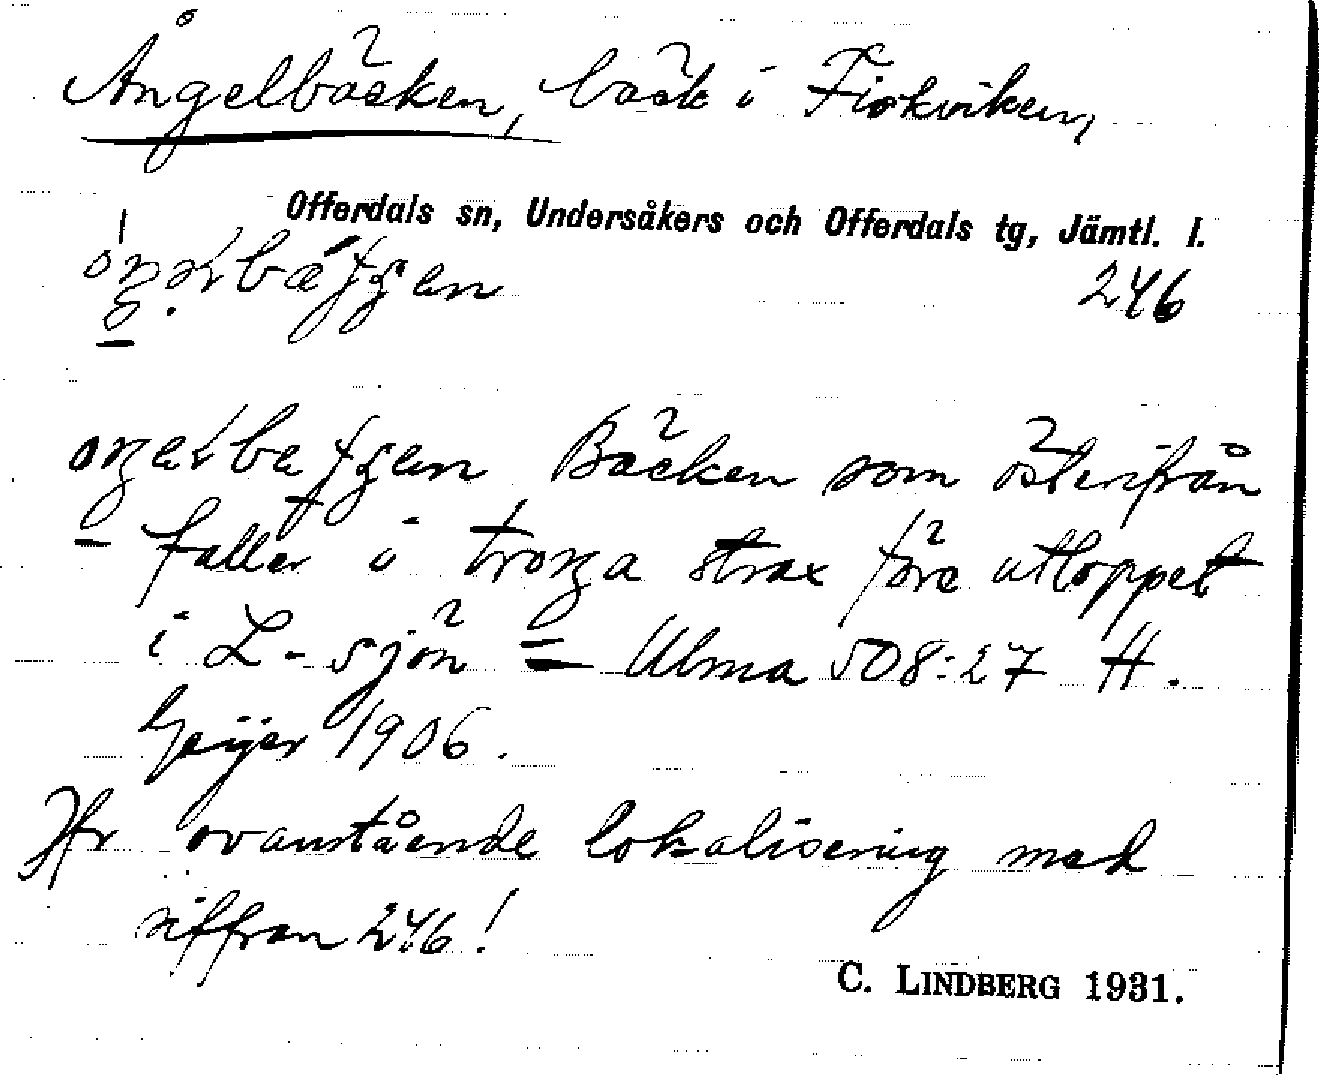 Ångelbäcken, bäck i Fiskviken,
Offerdals sn, Undersåkers och Offerdals tg, Jämtl. l.
246
Bäcken som österifrån
faller i troŋa strax före utloppet
i L-sjön = Ulma 508:27 H.
Geijer 1906.
Jfr ovanstående lokalisering med
siffran 246!
C. LINDBERG 1931.